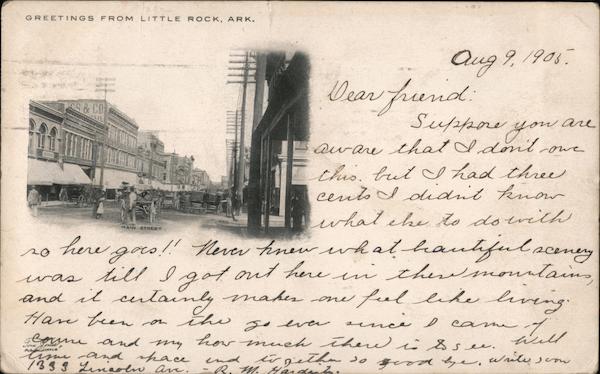 GREETINGS FROM LITTLE ROCK, ARK.
Aug 9, 1905.
Dear friend:
Suppose you are
aware that I don't owe
this. but I had three
cents I didn't know
what else to do with
MAIN STREET
so here goes!! Never knew what beautiful scenery
was till I got out here in these mountains,
and it certainly makes one feel like living.
Have been on the go ever since I came of
course and my how much there is to see. Well
time and space end together so good bye. Write soon
1333 Lincoln Av. - R. M.